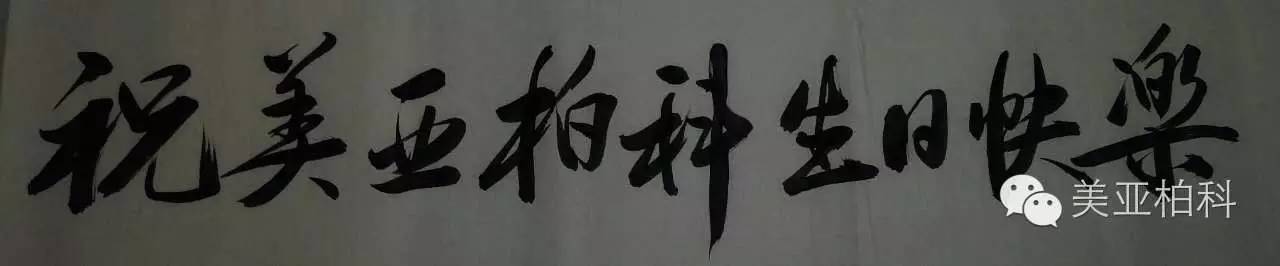 祝美亚柏科生日快樂
美亚柏科